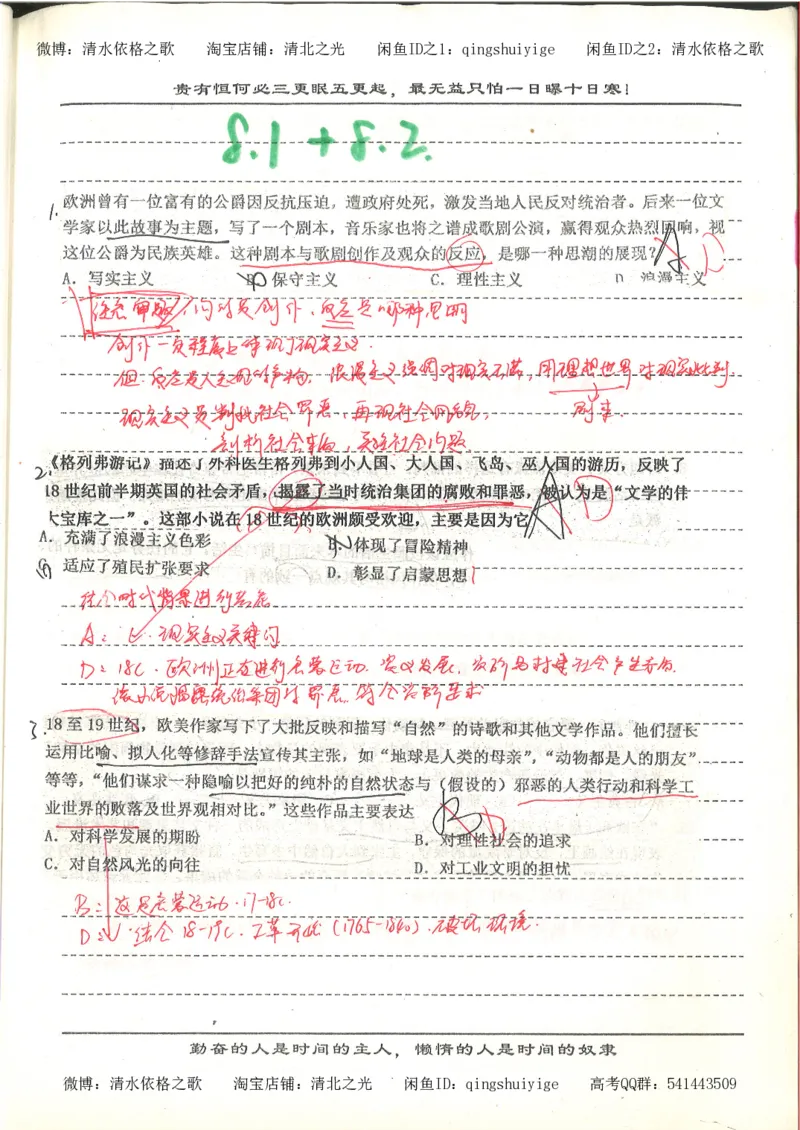 微博：清水依格之歌 淘宝店铺：清北之光 闲鱼ID之1：qingshuiyige 闲鱼ID之2：清水依格之歌
贵有恒何必三更眠五更起，最无益只怕一日曝十日寒！
8.1＋8.2.
1. 欧洲曾有一位富有的公爵因反抗压迫，遭政府处死，激发当地人民反对统治者。后来一位文
学家以此故事为主题，写了一个剧本，音乐家也将之谱成歌剧公演，赢得观众热烈回响，视
这位公爵为民族英雄。这种剧本与歌剧创作及观众的反应，是哪一种思潮的展现？A D
A．写实主义 B．保守主义 C．理性主义 D．浪漫主义
注意审题
创作一定程度上体现了现实主义.
2. 《格列弗游记》描述了外科医生格列弗到小人国、大人国、飞岛、巫人国的游历，反映了
18世纪前半期英国的社会矛盾，揭露了当时统治集团的腐败和罪恶，被认为是“文学的伟
大宝库之一”。这部小说在18世纪的欧洲颇受欢迎，主要是因为它 A D
A．充满了浪漫主义色彩 B．体现了冒险精神
C 适应了殖民扩张要求 D．彰显了启蒙思想
结合时代背景进行答题
3. 18至19世纪，欧美作家写下了大批反映和描写“自然”的诗歌和其他文学作品。他们擅长
运用比喻、拟人化等修辞手法宣传其主张，如“地球是人类的母亲”，“动物都是人的朋友”
等等，“他们谋求一种隐喻以把好的纯朴的自然状态与（假设的）邪恶的人类行动和科学工
业世界的败落及世界观相对比。”这些作品主要表达 B D
A．对科学发展的期盼 B．对理性社会的追求
C．对自然风光的向往 D．对工业文明的担忧
B：这是启蒙运动·17-18c.
D：结合18-19c．工革开始（1765-1840）．破坏环境．
勤奋的人是时间的主人，懒惰的人是时间的奴隶
微博：清水依格之歌 淘宝店铺：清北之光 闲鱼ID：qingshuiyige 高考QQ群：541443509